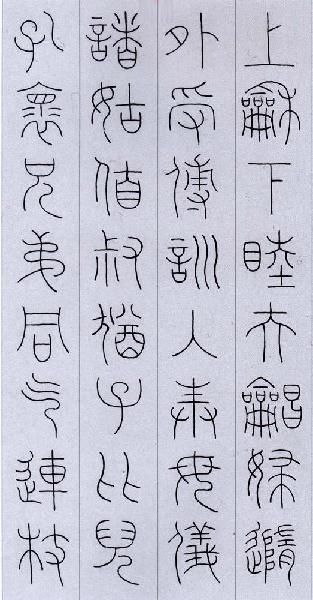 上龢下睦夫唱婦隨
外受傅訓入奉母儀
諸姑伯叔猶子比兒
孔褱兄弟同气連枝